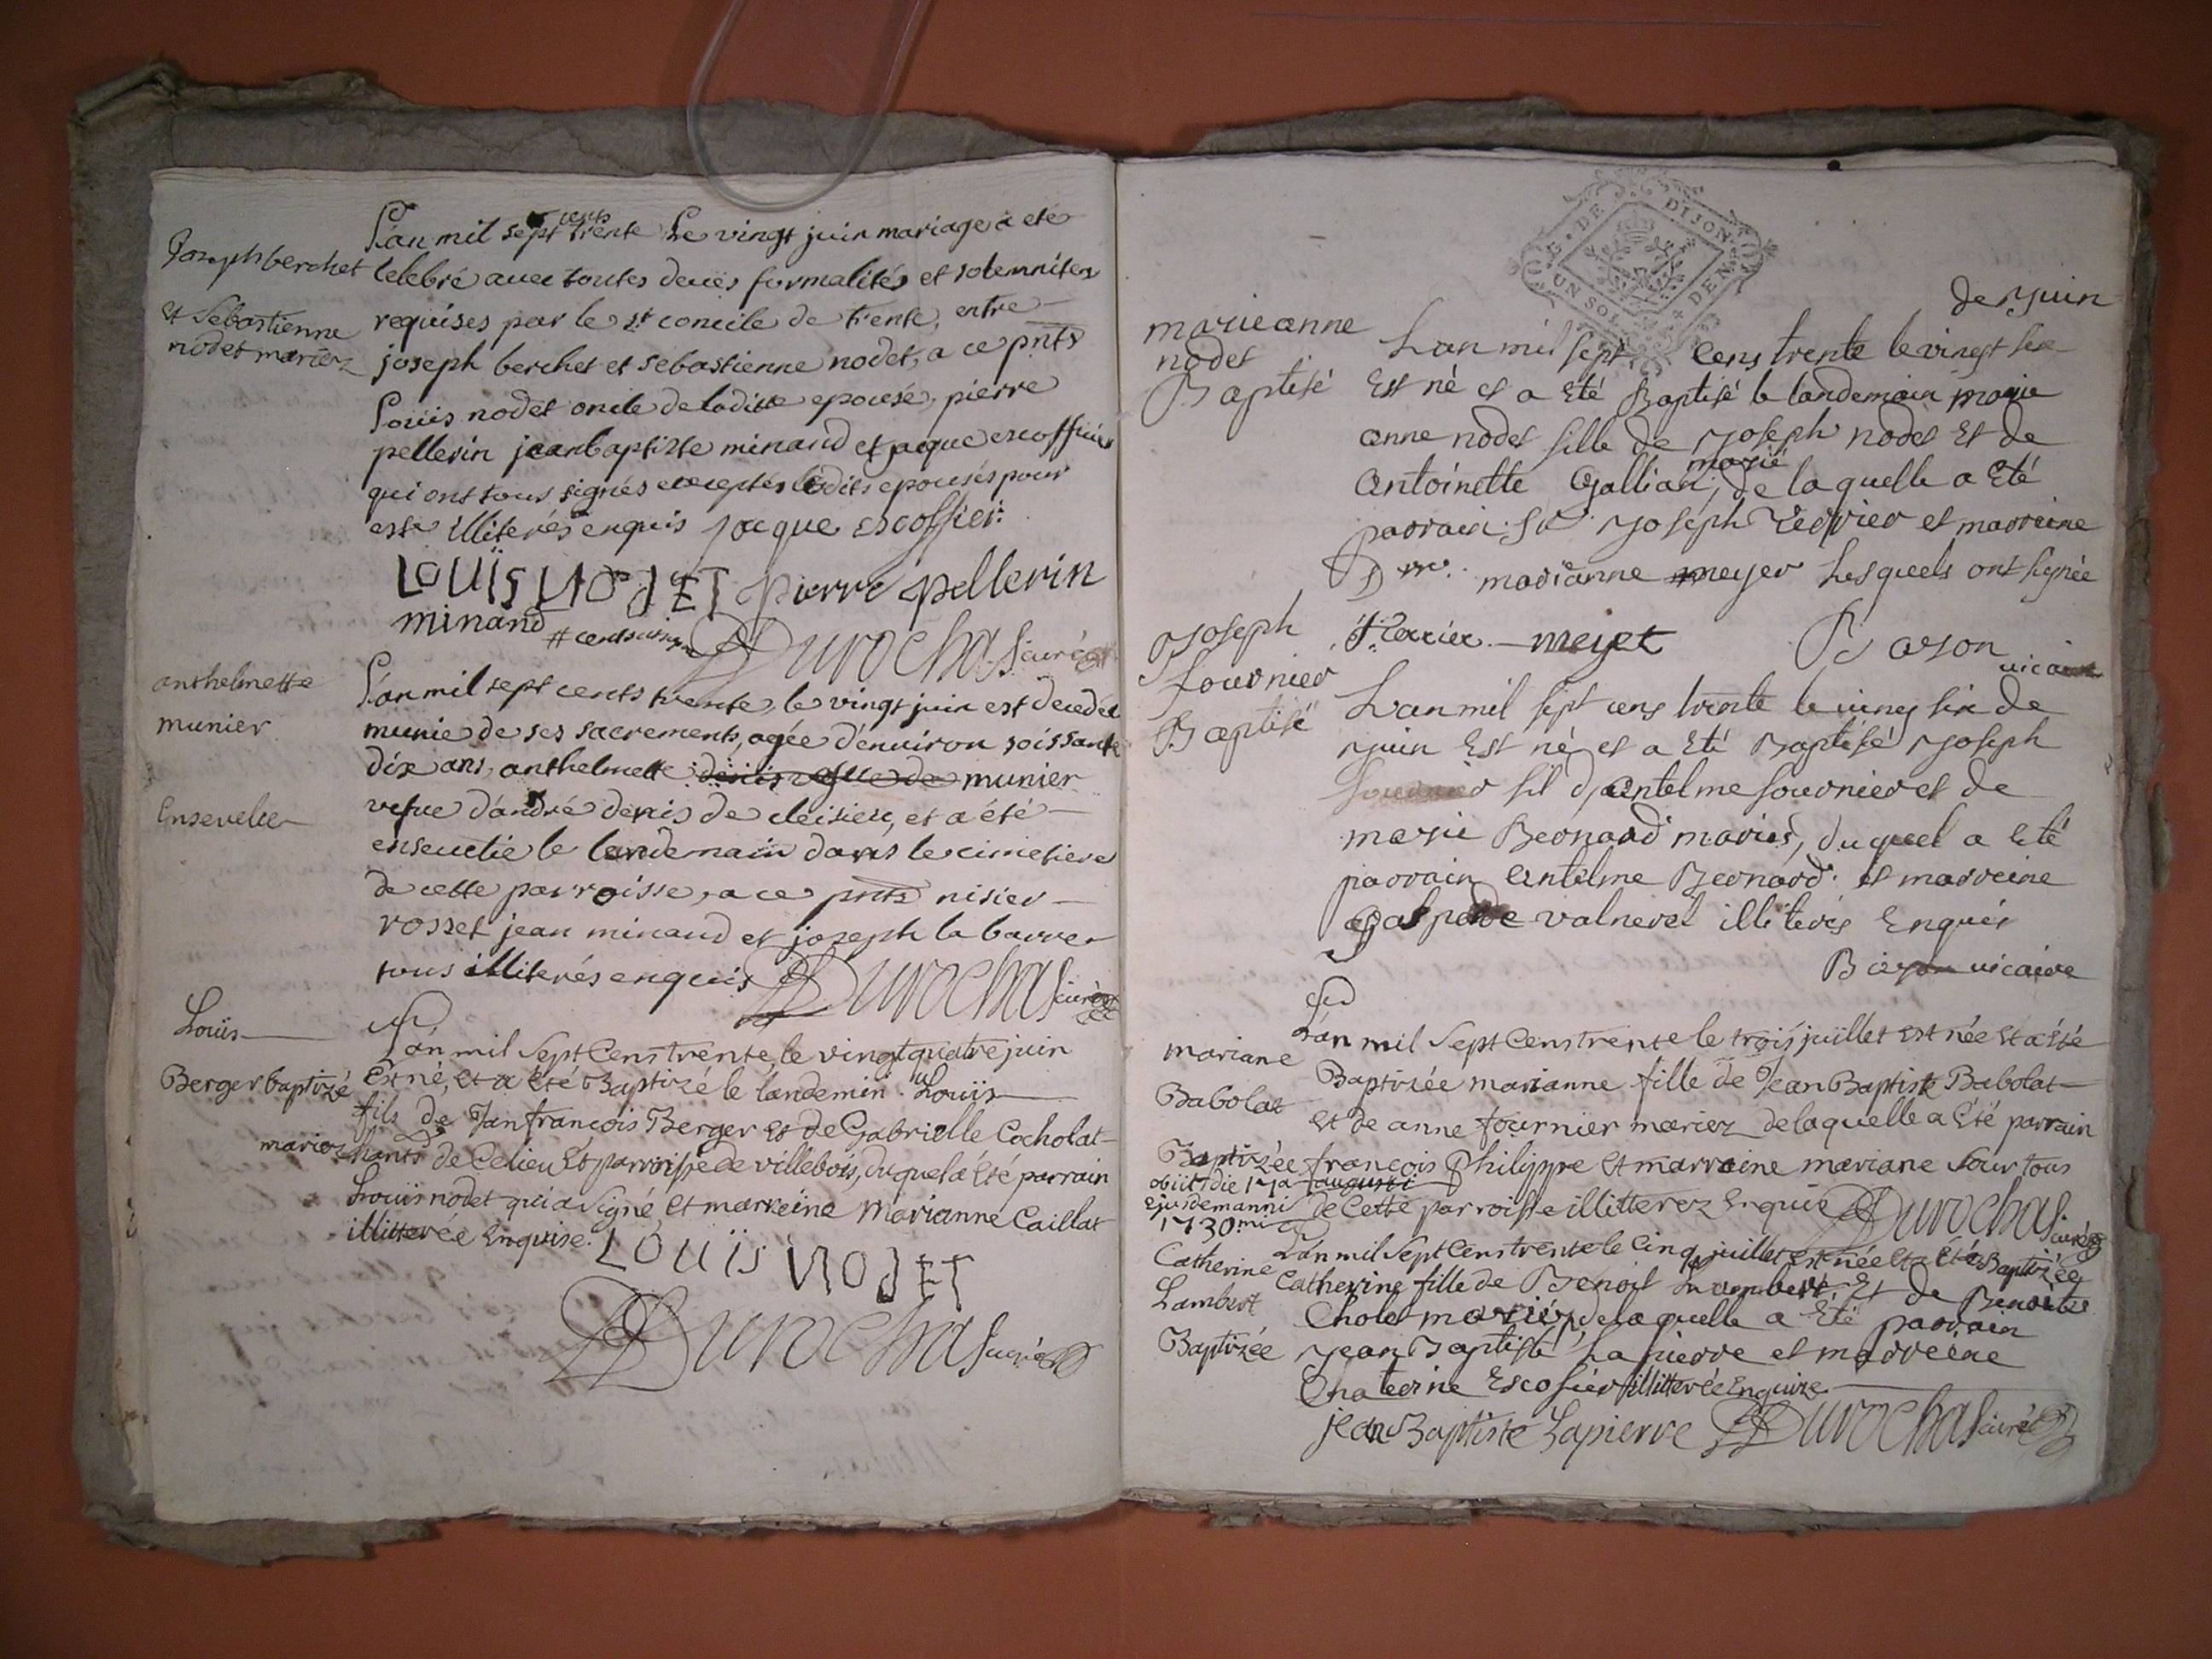 Joseph berchet
et Sebastienne
nodet mariez
L'an mil sept cents trente Le vingt juin mariage a eté
celebré avec toutes deües formalités et solemnitez
requises par le st concile de trente, entre
joseph berchet et sebastienne nodet, a ce pnts
Loüis nodet oncle de laditte epouse, pierre
pellerin jean baptiste minand et jacque escoffier
qui ont tous signés exceptés lesdits epousés pour
estre illiterés enquis jacque escoffier
LOUÏS NODET pierre pellerin
minand Durochas curé
anthelmette
munier
Ensevelie
L'an mil sept cents trente, le vingt juin est decedée
munie de ses sacrements, agée d'environ soissante
dix ans, anthelmette munier
vefue d'andré denis de cleisieu, et a été
ensevelie le landemain dans le cimetiere
de cette parroisse, a ce pnts nisier
rosset jean minand et joseph la barre
tous illiterés enquis Durochas curé
Loüis
Berger baptizé
L'an mil Sept Cens trente, le vingt quatre juin
Est né, et a Eté Baptizé le landemin Loüis
fils de Jan françois Berger et de Gabrielle Cocholat
mariez hants de Celieu Et parroisse de villebois, duquel a Eté parrain
Loüis nodet qui a Signé, Et marreine Marianne Caillat
illitterée Enquise. LOUÏS NODET
Durochas curé
DE DIJON
UN SOL DEN
de Juin
marieanne
nodet
Baptisé
Lan mil sept Cens trente le vingt six
Est né et a Eté Baptisé le landemain marie
anne nodet fille de Joseph nodet Et de
Antoinette Gallian, marié de laquelle a Eté
parrain Sr Joseph Verrier et marreine
Dme. marianne meyer Lesquels ont signée
J. Verrier meyet Bayon
vicaire
Joseph
fournier
Baptisé
Lan mil sept cens trente le vingt six de
Juin Est né et a Eté Baptisé Joseph
fournier fil d'Antelme fournier et de
marie Bernard mariés, duquel a Eté
parrain Antelme Bernard et marreine
Gasparde valnerel illiterés Enquis
Bayon vicaire
mariane
Babolat
Baptizée
obiit die 17a augusti
ejusdem anni
1730mi
L'an mil Sept Cens trente le trois juillet est née Et a Eté
Baptizée marianne fille de Jean Baptiste Babolat
Et de anne fournier mariez de laquelle a Eté parrain
françois Philippe et marraine mariane Sour tous
de Cette parroisse illitterez Enquis Durochas curé
Catherine
Lambert
Baptizée
L'an mil Sept Cens trente le Cinq juillet est née Et a Eté Baptizée
Catherine fille de Benoit Lambert Et de Benoite
Cholet mariés, de laquelle a Eté parrain
Jean Baptiste Lapierre et marreine
Chaterine Escofier illitterée Enquize
jean Baptiste Lapierre Durochas curé